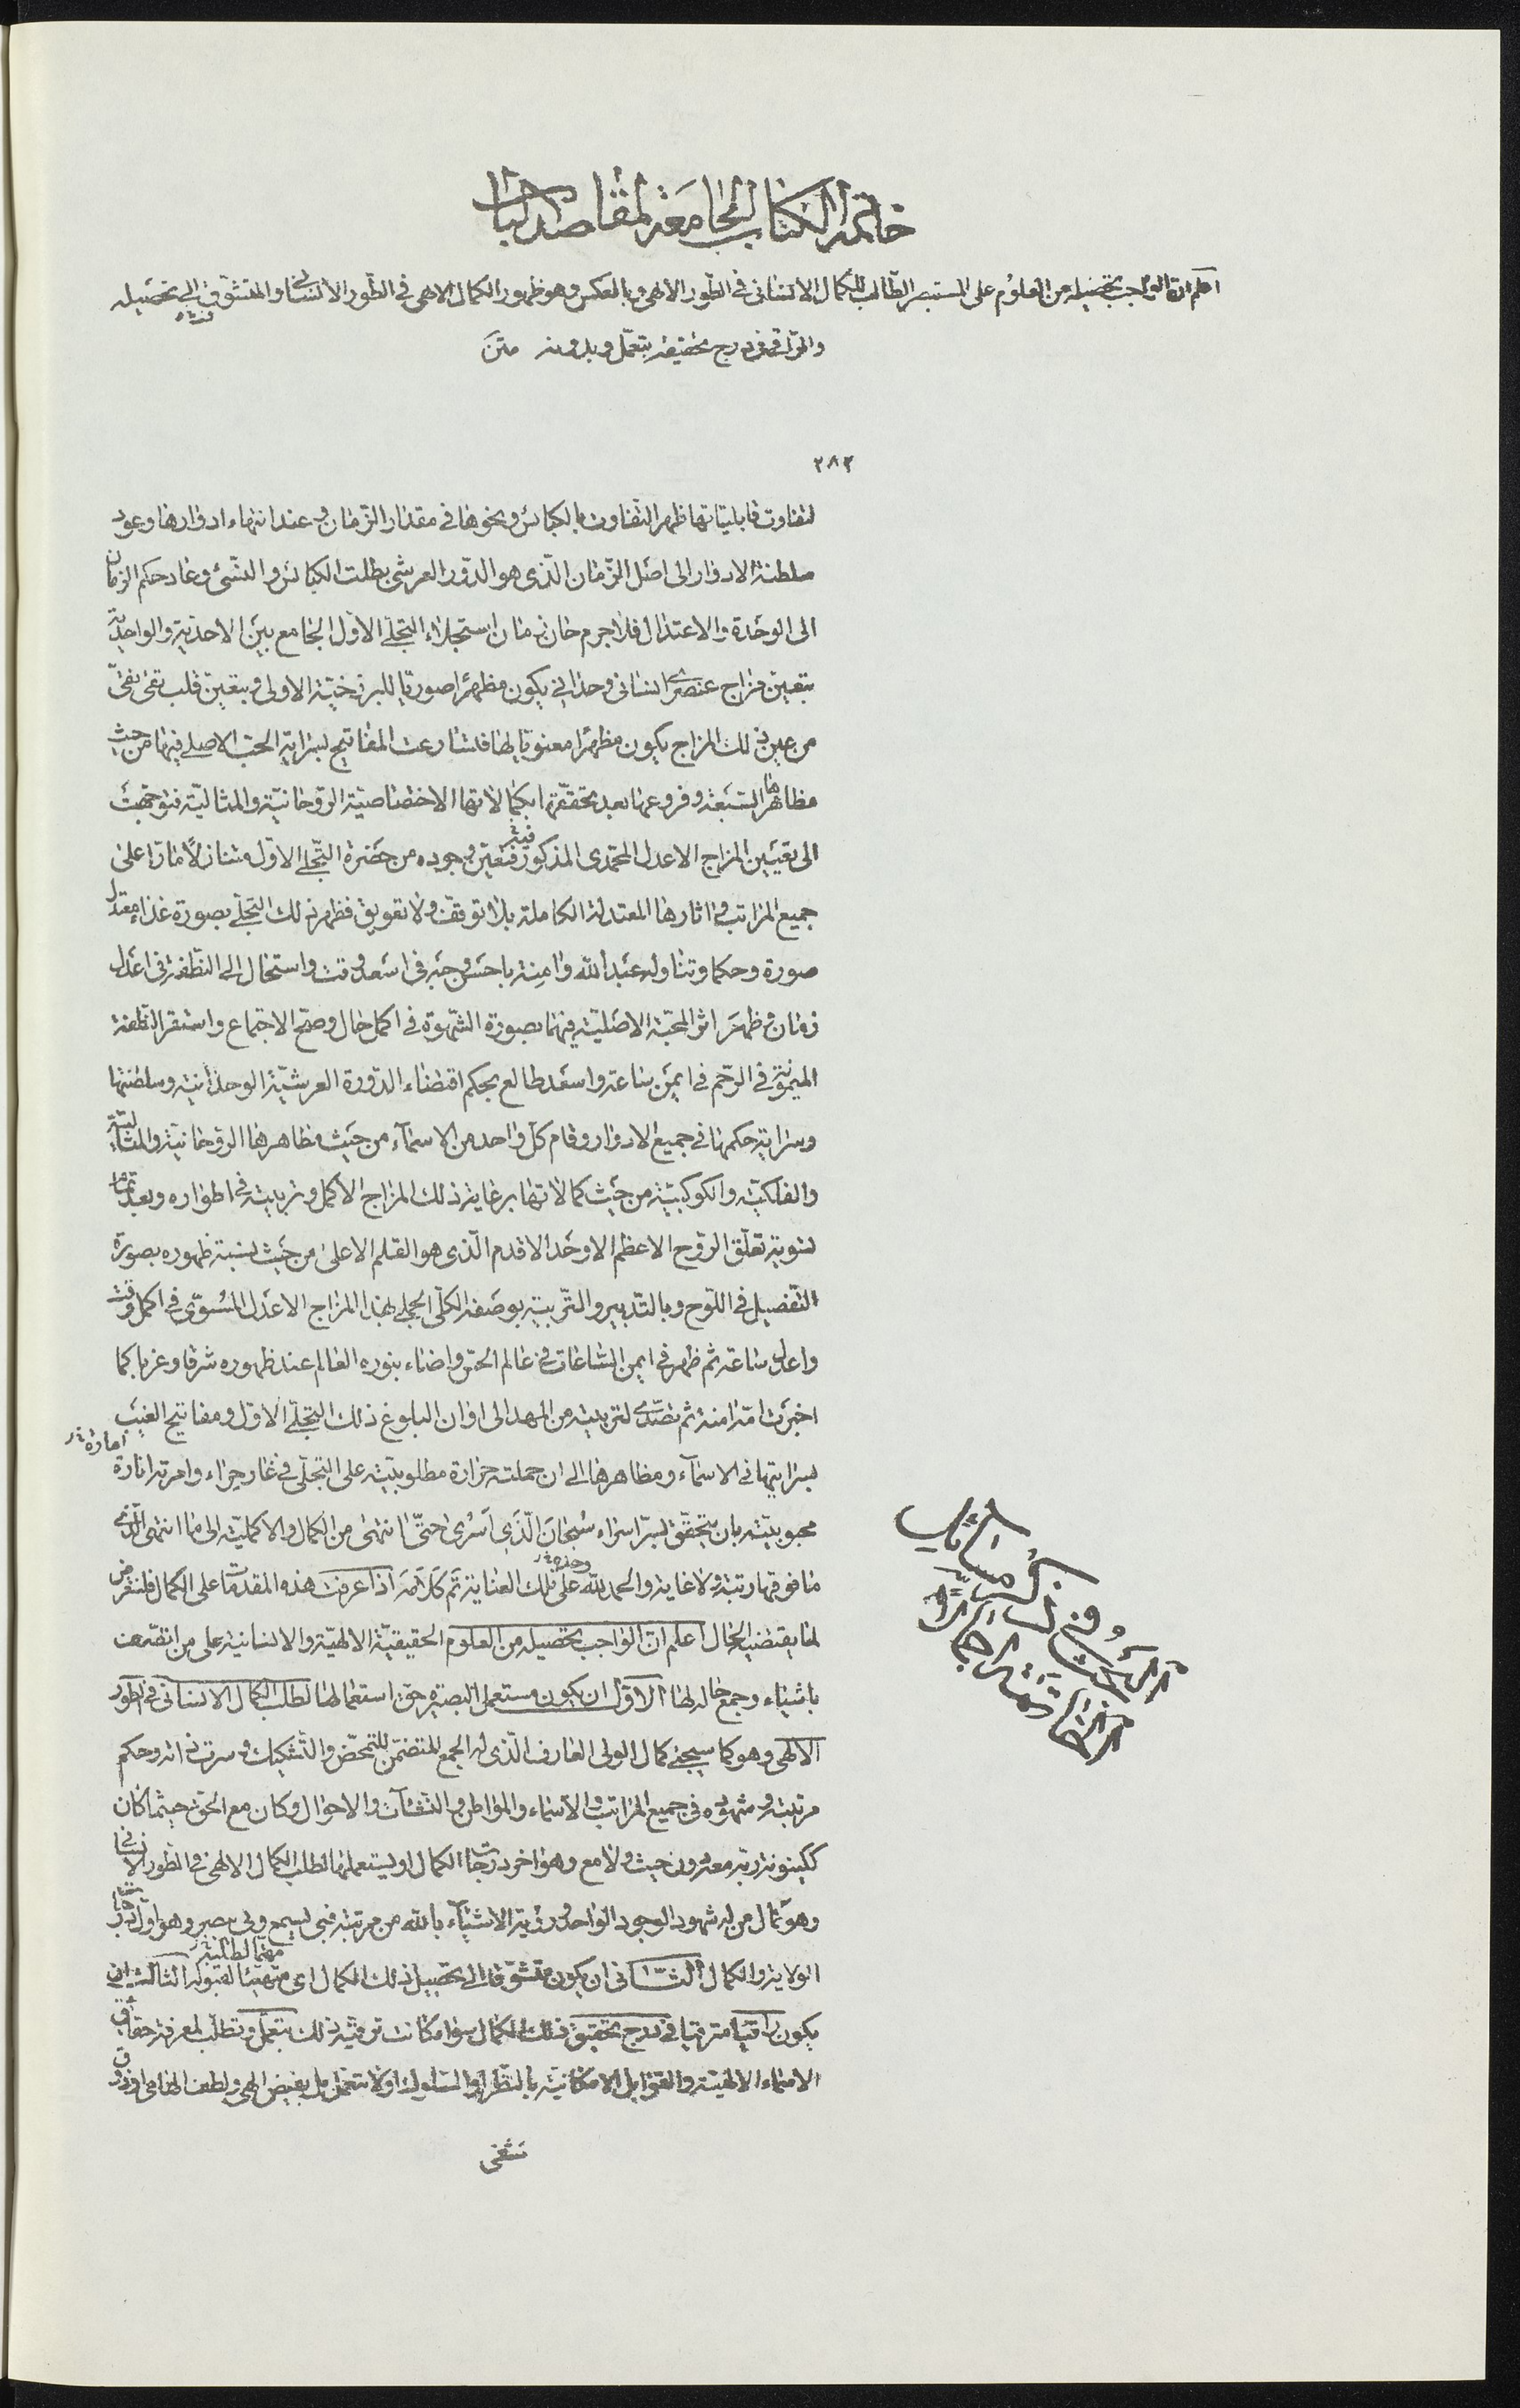 خاتمة الكتاب الجامعة لمقاصد الباب
اعلم ان الواجب تحصيله من العلوم على المستبصر الطالب للكمال الانسانى فى الطور الالهى وبالعكس وهو ظهور الكمال الالهى فى الطور الانسانى والمتشوق الى تحصيله
والمراقى فى درج تحقيقه بتعمّل وبدونه متن
٢٨٣
لتفاوت قابلياتها ظهر التفاوت بالكبائس ونحوها فى مقدار الزمان وعند انتهاء ادوارها وعود
سلطنة الادوار الى اصل الزمان الذى هو الدّور العرشى بطلت الكبائس والنسئ وعاد حكم الزمان
الى الوحدة والاعتدال فلا جرم حان زمان استجلاء التجلى الاول الجامع بين الاحدية والواحدية
بتعين مزاج عنصرى انسانى وحدانى يكون مظهرا صوريا للبرزخية الاولى وبتعين قلب تقى نقى
من عين ذلك المزاج يكون مظهرا معنويا لها فتسارعت المفاتيح لسراية الحب الاصلى فيها من حيث
مظاهرها السبعة وفروعها بعد تحققها بكمالاتها الاختصاصية الروحانية والمثالية فتوجهت
الى تعيين المزاج الاعدل المحمدى المذكور فتعين وجوده من حضرة التجلى الاول متنازلا مارا على
جميع المراتب واثارها المعتدلة الكاملة بلا توقف ولا تعويق فظهر ذلك التجلى بصورة غذاء معتدل
صورة وحكما وتناوله عبد الله وامنة باحسن وجه فى اسعد وقت واستحال الى النطفة فى اعدل
زمان وظهر اثر المحبة الاصلية فيهما بصورة الشهوة فى اكمل حال وصح الاجتماع واستقر النطفة
الميمونة فى الرحم فى ايمن ساعة واسعد طالع بحكم اقتضاء الدورة العرشية الوحدانية وسلطنتها
وسراية حكمها فى جميع الادوار وقام كل واحد من الاسماء من حيث مظاهرها الروحانية والمثالية
والفلكية والكوكبية من حيث كمالاتها برعاية ذلك المزاج الاكمل وتربيته فى اطواره وبعد تمام
تسويته تعلق الروح الاعظم الاوحد الاقدم الذى هو القلم الاعلى من حيث نسبة ظهوره بصورة
التفصيل فى اللوح وبالتدبير والتربية بوصفه الكلى الجملى بهذا المزاج الاعدل المسوى فى اكمل وقت
واعدل ساعة ثم ظهر فى ايمن الساعات فى عالم الحس واضاء بنوره العالم عند ظهوره شرقا وغربا كما
اخبرت امه امنة ثم تصدى لتربيته من المهد الى اوان البلوغ ذلك التجلى الاول ومفاتيح الغيب
بسرايتها فى الاسماء ومظاهرها الى ان حملته حرارة مطلوبيته على التجلى فى غار حراء وامرته اثارة
محبوبيته بان يتحقق بسر اسراء سبحان الذى اسرى حتى انتهى من الكمال والاكملية الى ما انتهى الذى
ما فوقها رتبة ولا غاية والحمد لله على تلك العناية تم كلامه اذا عرفت هذه المقدمات على الكمال فلنتعرض
لما يقتضيه الحال اعلم ان الواجب تحصيله من العلوم الحقيقية الالهية والانسانية على من اتصف
باشياء وجمع حاله لها الاول ان يكون مستعملا لبصيرة حق استعمالها لطلب الكمال الانسانى فى الطور
الالهى وهو كما سيجئ كمال الولى العارف الذى له الجمع المتضمن للتمحض والتشكيك وسرت ذاته وحكم
مرتبته وشهوده فى جميع المراتب والاسماء والمواطن والنشآت والاحوال وكان مع الحق حيثما كان
ككينونة ربه معه دون حيث ولا مع وهو اخر درجات الكمال او يستعملها لطلب الكمال الالهى فى الطور الانسانى
وهو كمال من له شهود الوجود الواحد ورؤية الاشياء بالله من مرتبة فبى يسمع وبى يبصر وهو اول درجات
الولاية والكمال الثانى ان يكون متشوقا الى تحصيل ذلك الكمال اى متهيئا لقبوله الثالث ان
يكون راقيا مترقيا فى درج تحقيق ذلك الكمال سواء كانت ترقيه ذلك بتعمل وتطلب لمعرفة حقائق
الاسماء الالهية والقوابل الامكانية بالنظر او السلوك اولا بتعمل بل بفيض الهى ولطف الهامى او ذوق